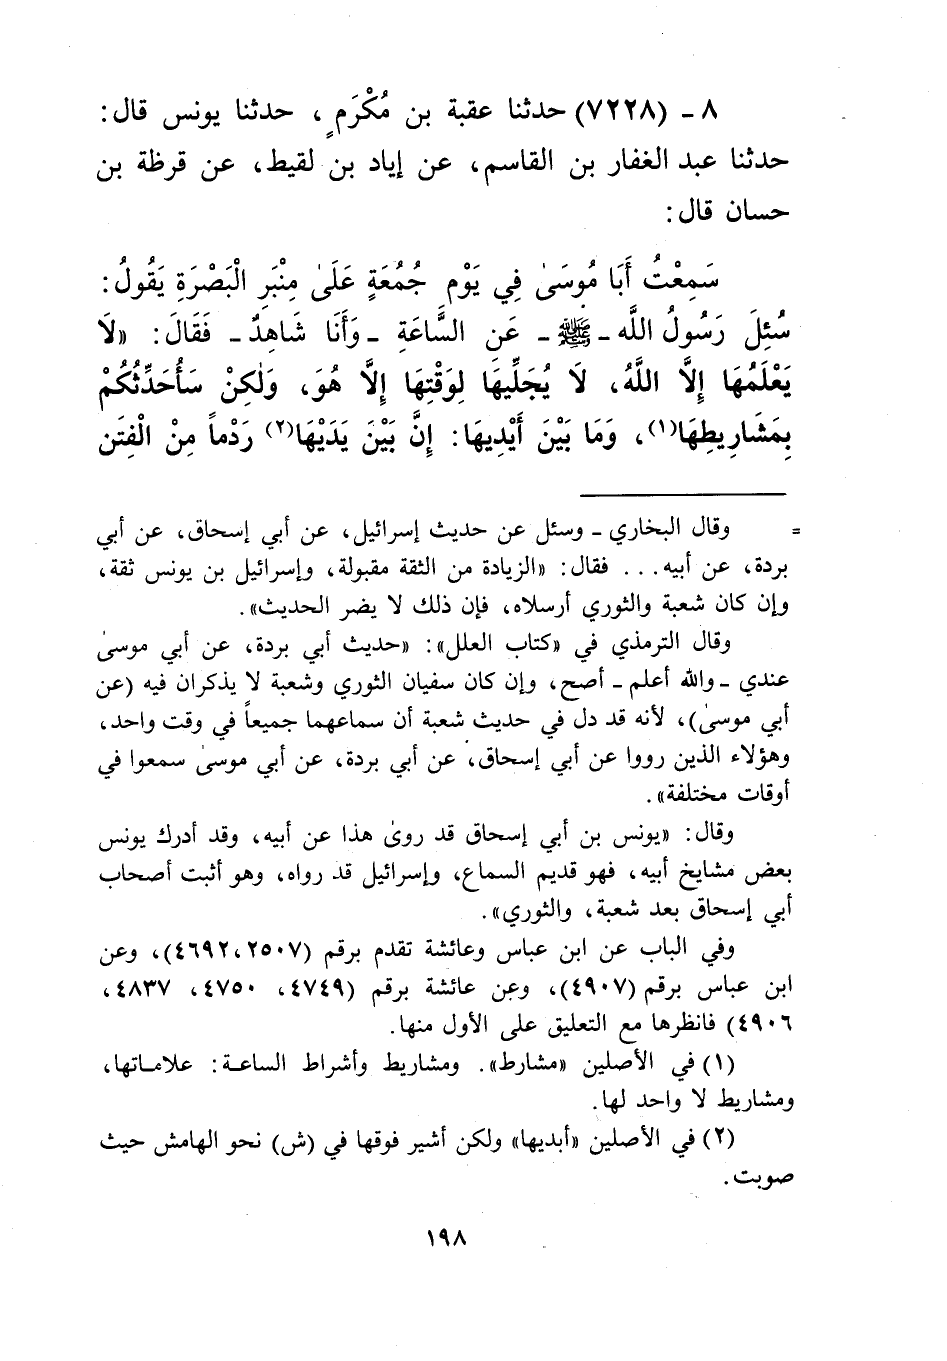 ٨ ـ (٧٢٢٨) حدثنا عقبة بن مُكْرَمٍ، حدثنا يونس قال:
حدثنا عبد الغفار بن القاسم، عن إياد بن لقيط، عن قرظة بن
حسان قال:
سَمِعْتُ أَبَا مُوسَىٰ فِي يَوْمِ جُمُعَةٍ عَلَىٰ مِنْبَرِ الْبَصْرَةِ يَقُولُ:
سُئِلَ رَسُولُ اللَّه ـ ﷺ ـ عَنِ السَّاعَةِ ـ وَأَنَا شَاهِدٌ ـ فَقَالَ: «لَا
يَعْلَمُهَا إِلَّا اللَّهُ، لَا يُجَلِّيهَا لِوَقْتِهَا إِلَّا هُوَ، وَلٰكِنْ سَأُحَدِّثُكُمْ
بِمَشَارِيطِهَا(١)، وَمَا بَيْنَ أَيْدِيهَا: إِنَّ بَيْنَ يَدَيْهَا(٢) رَدْماً مِنْ الْفِتَنِ
= وقال البخاري ـ وسئل عن حديث إسرائيل، عن أبي إسحاق، عن أبي
بردة، عن أبيه... فقال: «الزيادة من الثقة مقبولة، وإسرائيل بن يونس ثقة،
وإن كان شعبة والثوري أرسلاه، فإن ذلك لا يضر الحديث».
وقال الترمذي في «كتاب العلل»: «حديث أبي بردة، عن أبي موسىٰ
عندي ـ والله أعلم ـ أصح، وإن كان سفيان الثوري وشعبة لا يذكران فيه (عن
أبي موسىٰ)، لأنه قد دل في حديث شعبة أن سماعهما جميعاً في وقت واحد،
وهؤلاء الذين رووا عن أبي إسحاق، عن أبي بردة، عن أبي موسىٰ سمعوا في
أوقات مختلفة».
وقال: «يونس بن أبي إسحاق قد روىٰ هذا عن أبيه، وقد أدرك يونس
بعض مشايخ أبيه، فهو قديم السماع، وإسرائيل قد رواه، وهو أثبت أصحاب
أبي إسحاق بعد شعبة، والثوري».
وفي الباب عن ابن عباس وعائشة تقدم برقم (٢٥٠٧، ٤٦٩٢)، وعن
ابن عباس برقم (٤٩٠٧)، وعن عائشة برقم (٤٧٤٩، ٤٧٥٠، ٤٨٣٧،
٤٩٠٦) فانظرها مع التعليق على الأول منها.
(١) في الأصلين «مشارط». ومشاريط وأشراط الساعة: علاماتها،
ومشاريط لا واحد لها.
(٢) في الأصلين «أبديها» ولكن أشير فوقها في (ش) نحو الهامش حيث
صوبت.
١٩٨